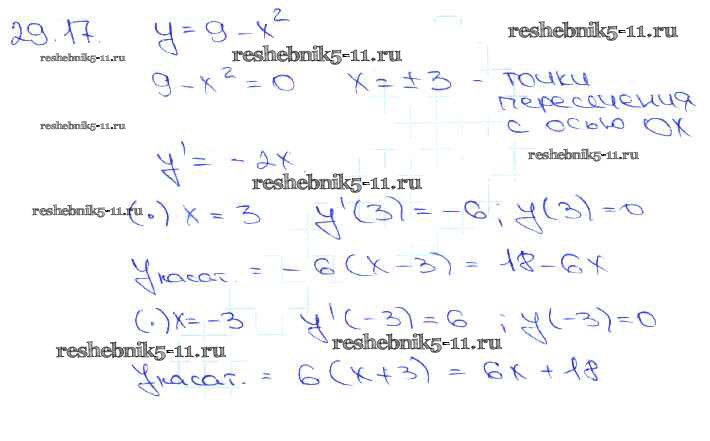 29.17. y = 9 - x² reshebnik5-11.ru
reshebnik5-11.ru reshebnik5-11.ru
9 - x² = 0 x = ± 3 - точки
пересечения
reshebnik5-11.ru с осью OX
y' = - 2x reshebnik5-11.ru
reshebnik5-11.ru
reshebnik5-11.ru (·) x = 3 y'(3) = -6; y(3) = 0
yкасат. = - 6(x - 3) = 18 - 6x
(·) x = -3 y'(-3) = 6 ; y(-3) = 0
reshebnik5-11.ru reshebnik5-11.ru
yкасат. = 6(x + 3) = 6x + 18